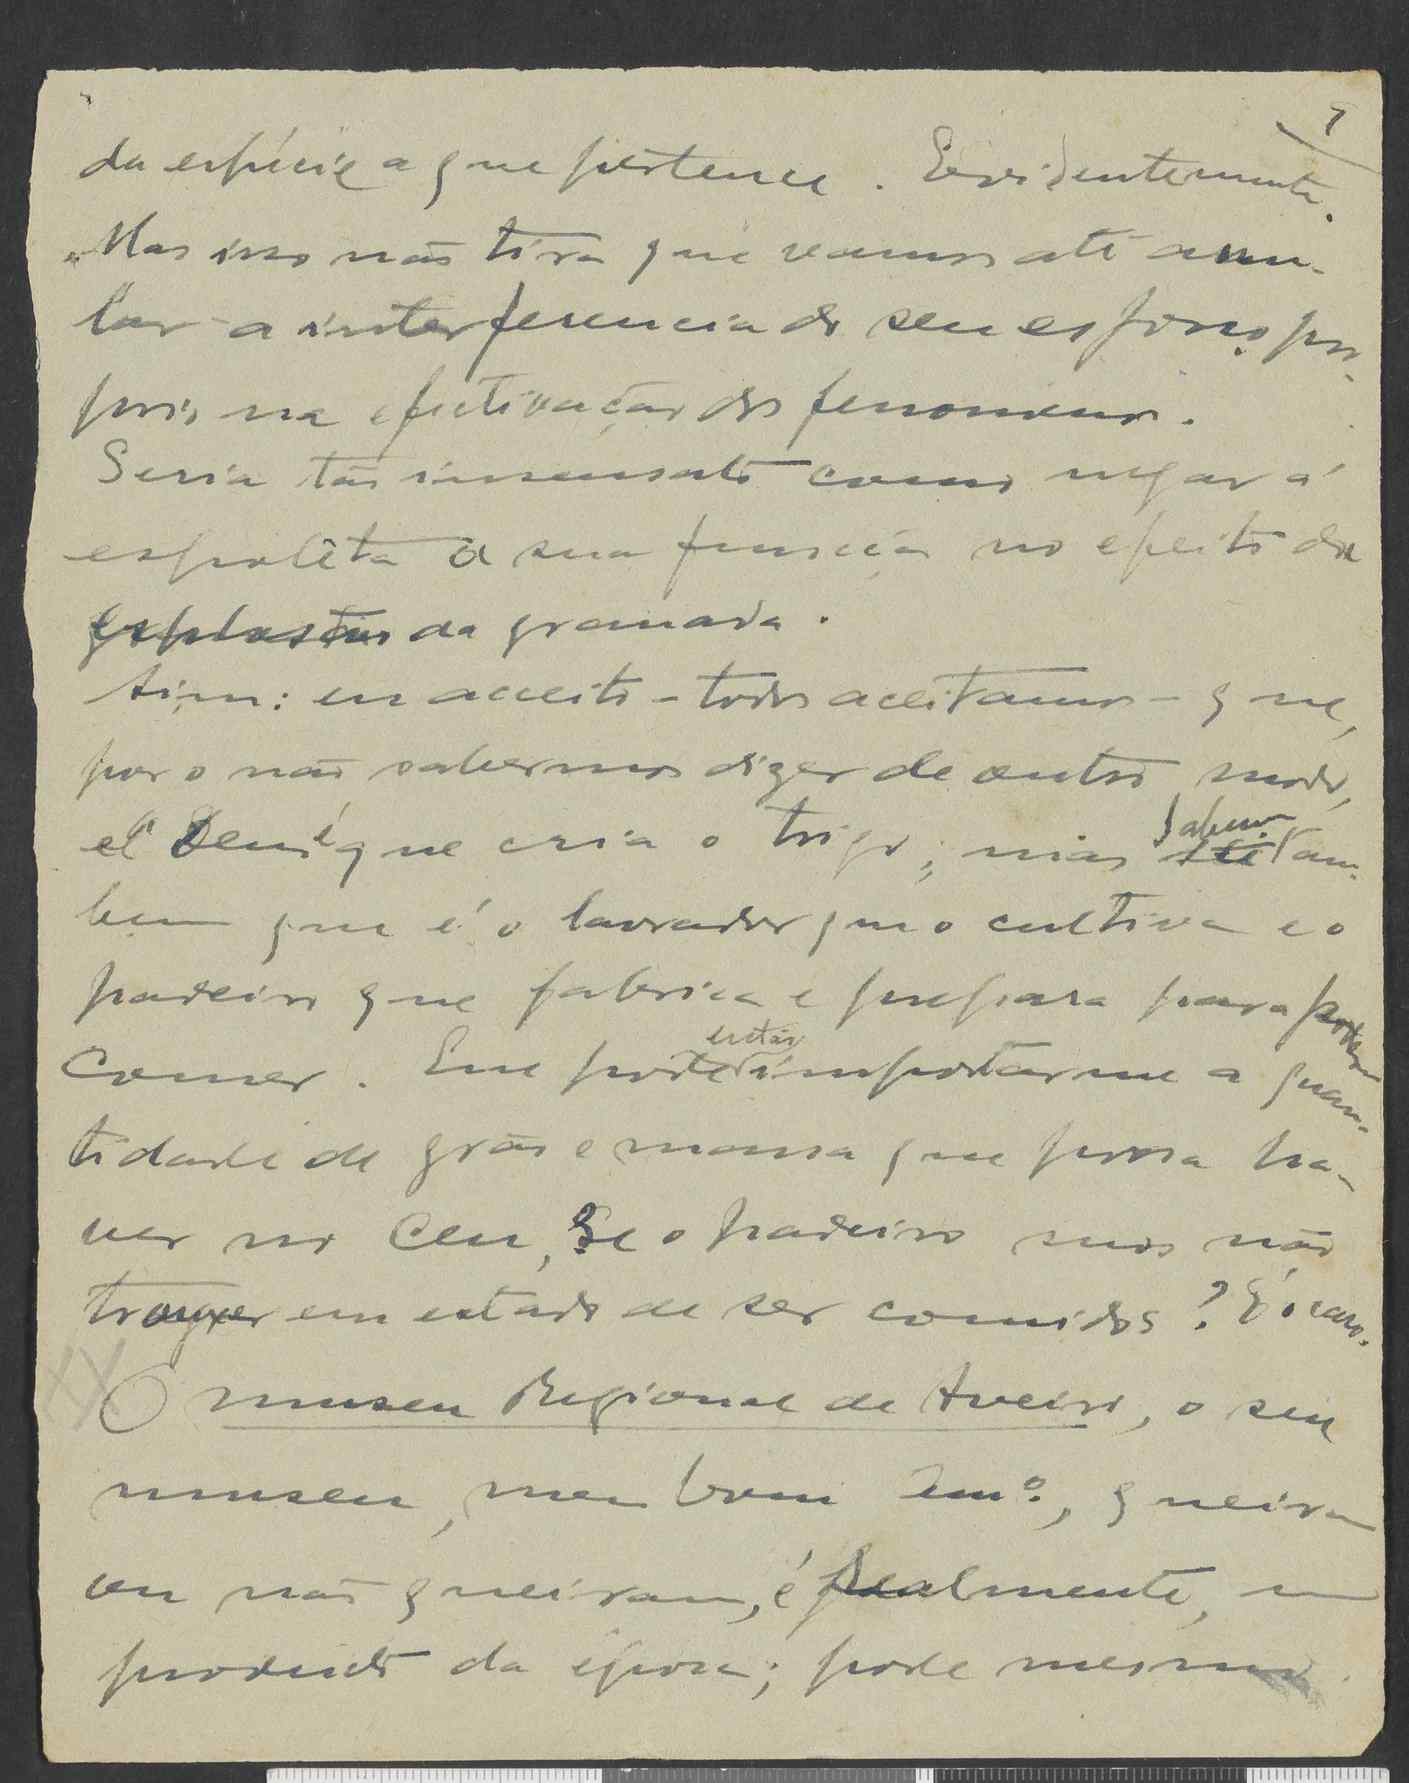 9
da espécie a que pertence. Evidentemente.
Mas isso não tira que vamos até anu-
lar a interferencia do seu esforço pro-
prio na efectivação do fenomeno.
Seria tão insensato como negar á
espolêta a sua função no efeito da
explosão da granada.
Sim: eu acceito - todos aceitamos - que,
por o não sabermos dizer de outro modo,
é Deus que cria o trigo; mas sabemos tam-
bem que é o lavrador que o cultiva e o
padeiro que fabrica e prepara para poder
comer. Que pode então importar-me a quan-
tidade de grão e massa que possa ha-
ver no Ceu, se o padeiro mos não
trouxer em estado de ser comidos? É o caso.
O museu Regional de Aveiro, o seu
museu, meu bom Amº., queiram
ou não queiram, é realmente, um
producto da época; pode mesmo